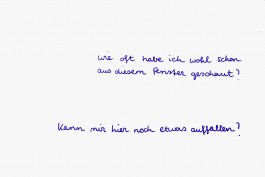 wie oft habe ich wohl schon
aus diesem Fenster geschaut?
Kann mir hier noch etwas auffallen?